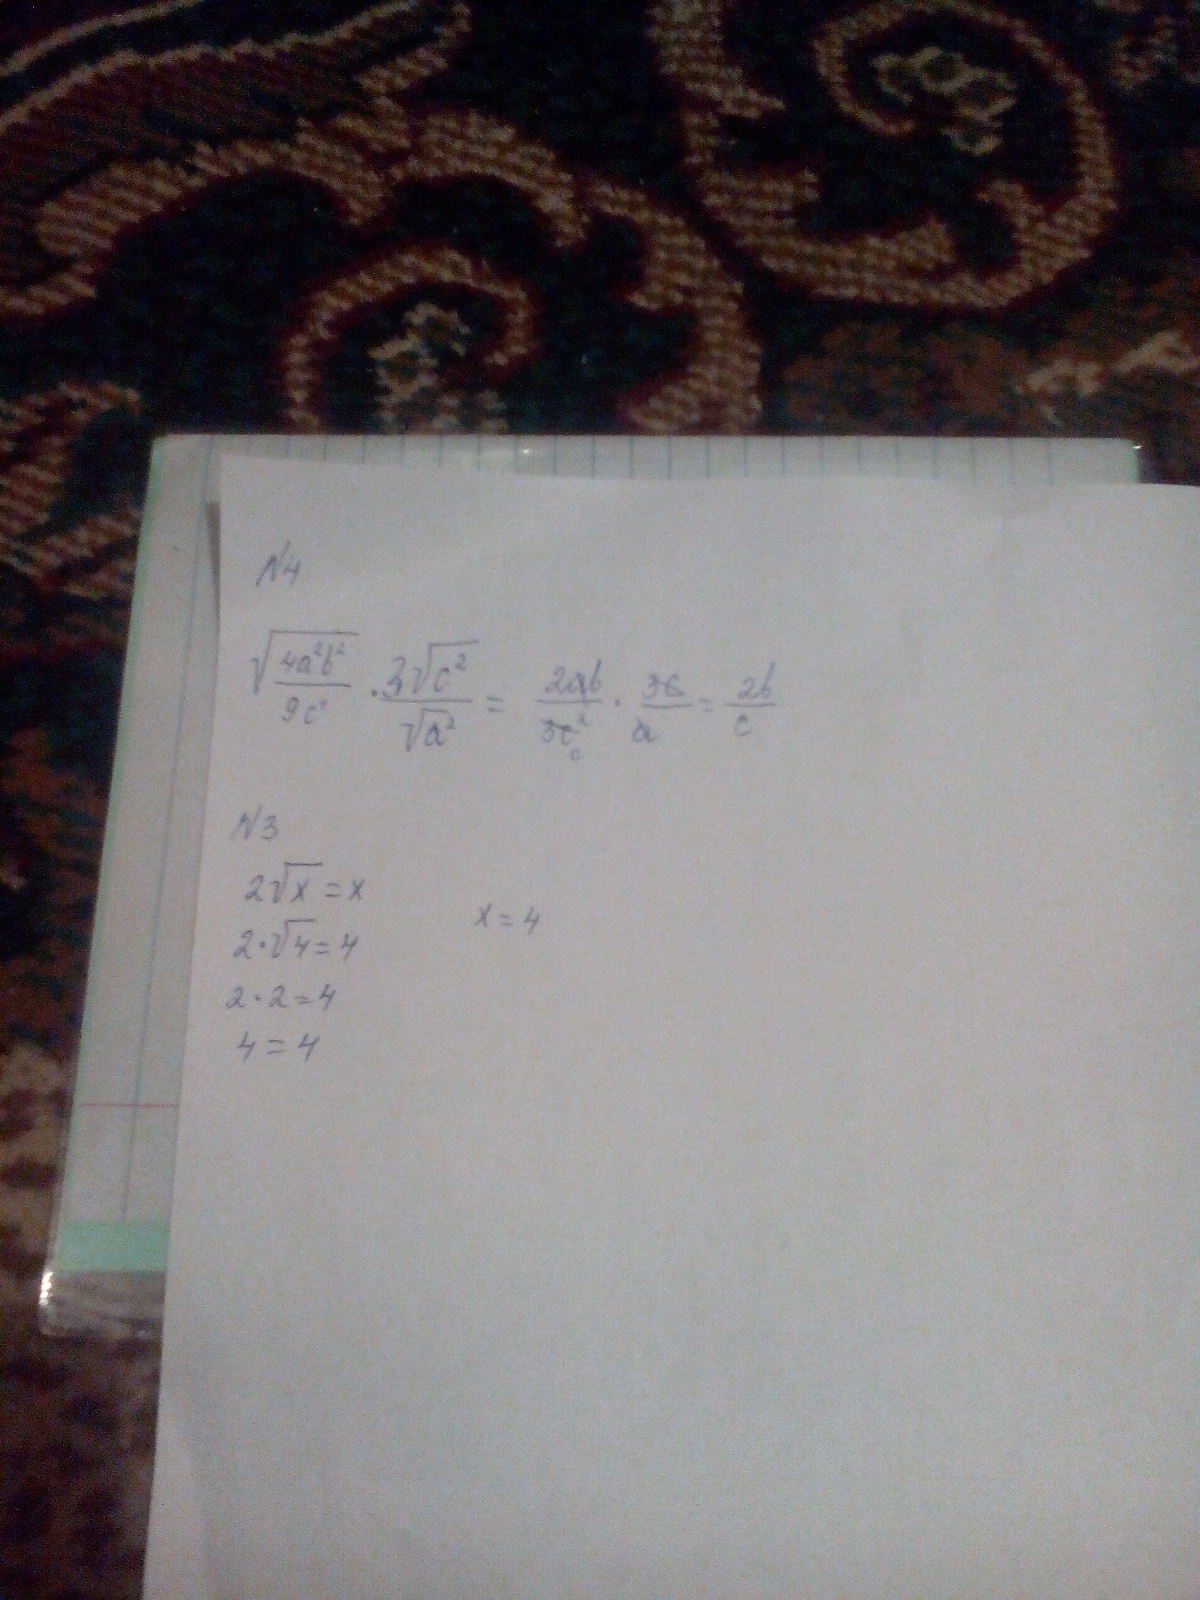 N4
√(4a²b²/9c⁴) · 3√c²/√a² = 2ab/3c² · 3c/a = 2b/c
c
N3
2√x = x
x = 4
2·√4 = 4
2·2 = 4
4 = 4